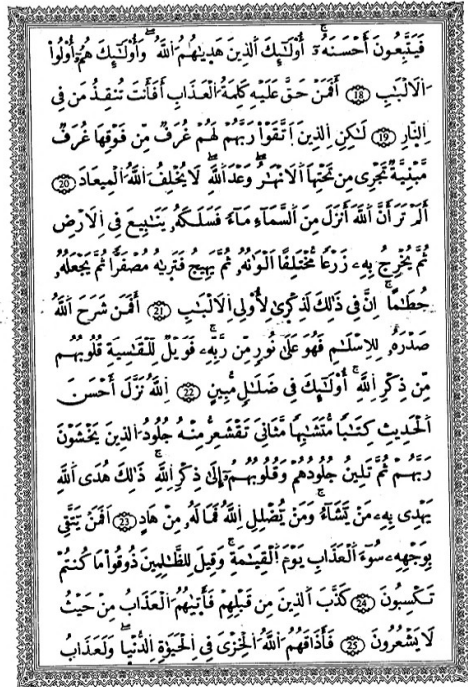 فَيَتَّبِعُونَ أَحْسَنَهُۥٓ أُوْلَٰٓئِكَ اَلذِينَ هَدَىٰهُمُ اُللَّهُ وَأُوْلَٰٓئِكَ هُمُۥٓ أُوْلُواْ
اُلَالْبَٰبِ 18 أَفَمَنْ حَقَّ عَلَيْهِ كَلِمَةُ اُلْعَذَابِ أَفَأَنتَ تُنقِذُ مَن فِي
اِلنَّارِ 19 لَٰكِنِ اِلذِينَ اَتَّقَوْاْ رَبَّهُمْ لَهُمْ غُرَفٌ مِّن فَوْقِهَا غُرَفٌ
مَّبْنِيَّةٌ تَجْرِي مِن تَحْتِهَا اَلَانْهَٰرُ وَعْدَ اَللَّهِ لَا يُخْلِفُ اُللَّهُ اُلْمِيعَادَ 20
أَلَمْ تَرَ أَنَّ اَللَّهَ أَنزَلَ مِنَ اَلسَّمَآءِ مَآءً فَسَلَكَهُۥ يَنَٰبِيعَ فِي اِلَارْضِ
ثُمَّ يُخْرِجُ بِهِۦ زَرْعًا مُّخْتَلِفًا اَلْوَٰنُهُۥ ثُمَّ يَهِيجُ فَتَرَىٰهُ مُصْفَرًّا ثُمَّ يَجْعَلُهُۥ
حُطَٰمًا اِنَّ فِي ذَٰلِكَ لَذِكْرَىٰ لِأُوْلِي اِلَالْبَٰبِ 21 أَفَمَن شَرَحَ اَللَّهُ
صَدْرَهُۥ لِلِاسْلَٰمِ فَهُوَ عَلَىٰ نُورٍ مِّن رَّبِّهِۦ فَوَيْلٌ لِّلْقَٰسِيَةِ قُلُوبُهُم
مِّن ذِكْرِ اِللَّهِ أُوْلَٰٓئِكَ فِي ضَلَٰلٍ مُّبِينٍ 22 اِللَّهُ نَزَّلَ أَحْسَنَ
اَلْحَدِيثِ كِتَٰبًا مُّتَشَٰبِهًا مَّثَانِيَ تَقْشَعِرُّ مِنْهُ جُلُودُ اُلذِينَ يَخْشَوْنَ
رَبَّهُمْ ثُمَّ تَلِينُ جُلُودُهُمْ وَقُلُوبُهُمُۥٓ إِلَىٰ ذِكْرِ اِللَّهِ ذَٰلِكَ هُدَى اَللَّهِ
يَهْدِي بِهِۦ مَنْ يَّشَآءُ وَمَنْ يُّضْلِلِ اِللَّهُ فَمَا لَهُۥ مِنْ هَادٍ 23 اَفَمَنْ يَّتَّقِي
بِوَجْهِهِۦ سُوٓءَ اَلْعَذَابِ يَوْمَ اَلْقِيَٰمَةِ وَقِيلَ لِلظَّٰلِمِينَ ذُوقُواْ مَا كُنتُمْ
تَكْسِبُونَ 24 كَذَّبَ اَلذِينَ مِن قَبْلِهِمْ فَأَتَىٰهُمُ اُلْعَذَابُ مِنْ حَيْثُ
لَا يَشْعُرُونَ 25 فَأَذَاقَهُمُ اُللَّهُ اُلْخِزْيَ فِي اِلْحَيَوٰةِ اِلدُّنْيَا وَلَعَذَابُ